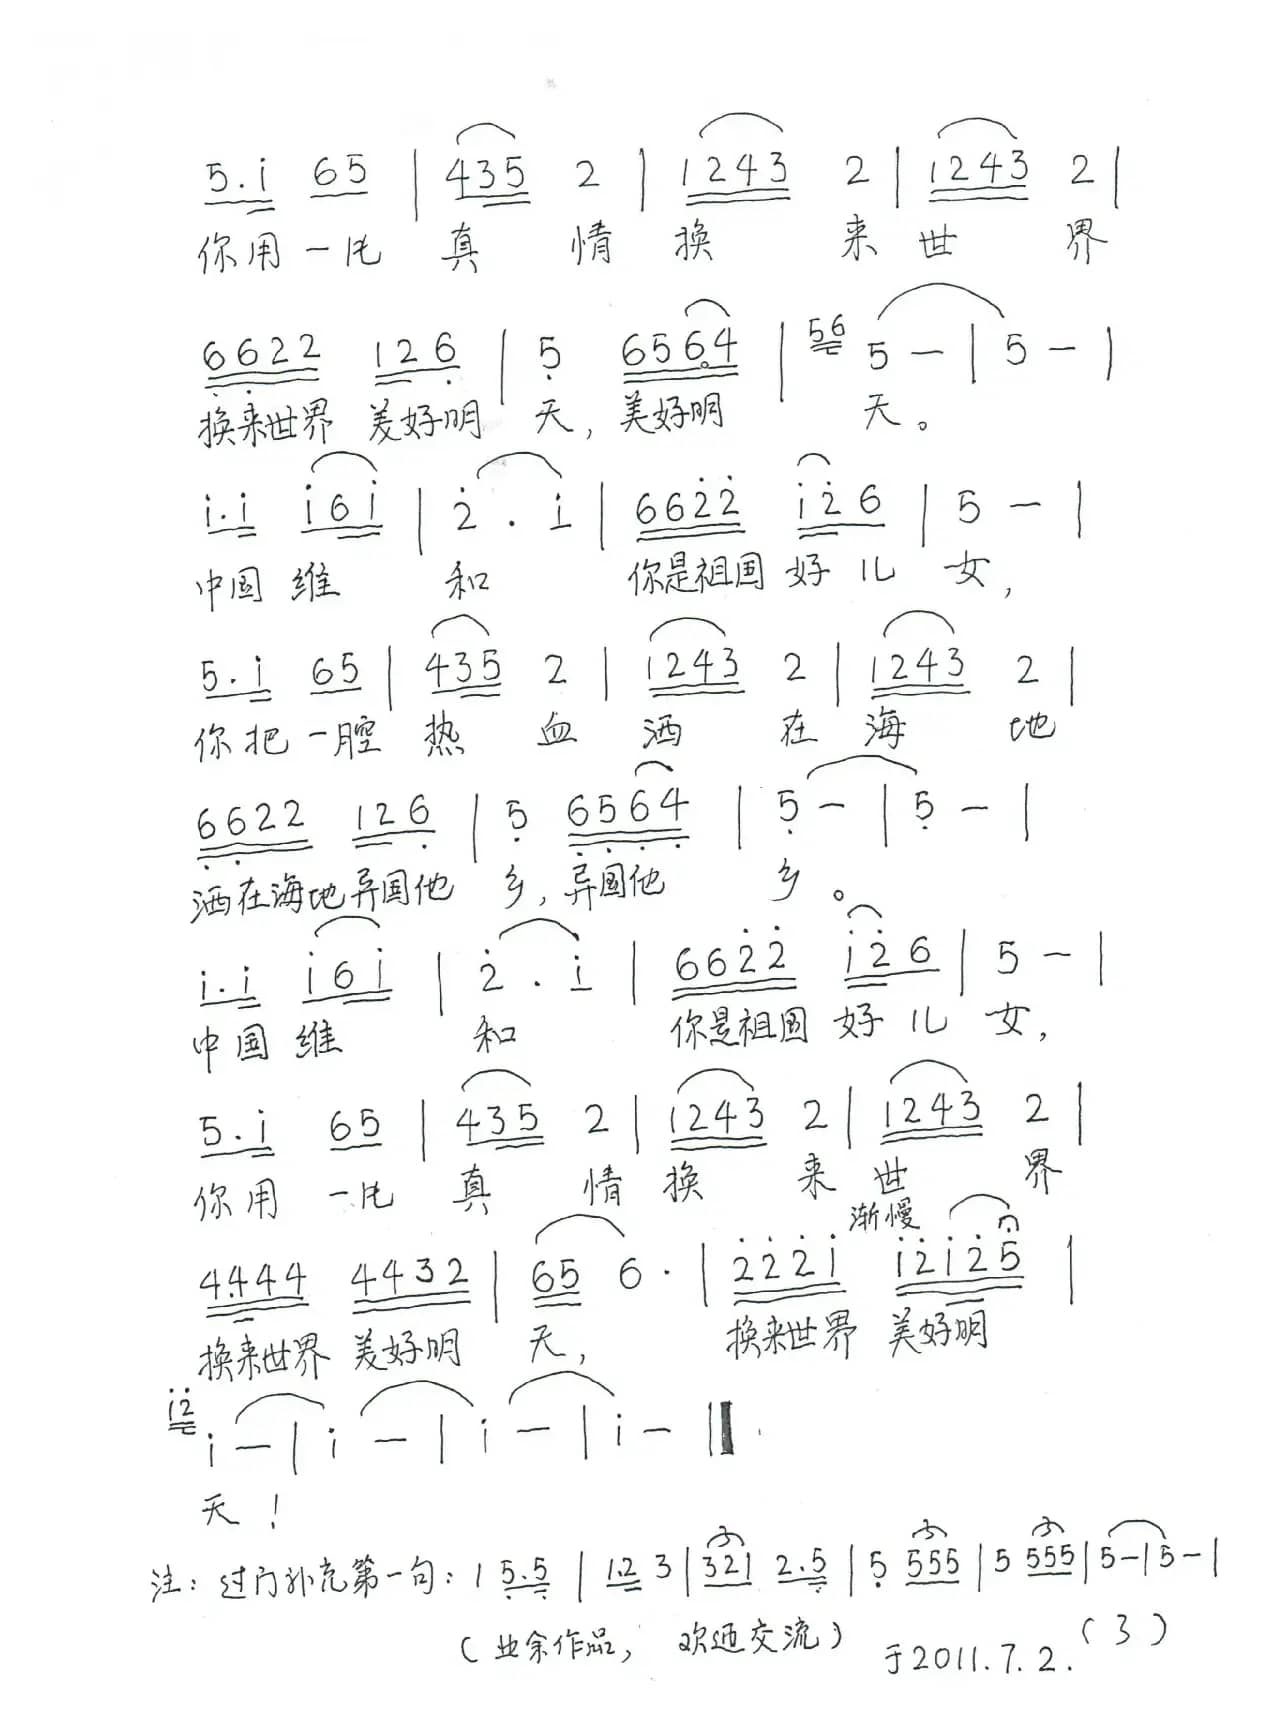 5.i 65 | 435 2 | 1243 2 | 1243 2 |
你用一片 真 情 换 来 世 界
6622 126 | 5 6564 | 56 5 — | 5 — |
换来世界 美好明 天, 美好明 天。
i.i i6i | 2 . i | 6622 i26 | 5 — |
中国 维 和 你是祖国 好儿 女,
5.i 65 | 435 2 | 1243 2 | 1243 2 |
你把一腔 热 血 洒 在 海 地
6622 126 | 5 6564 | 5 — | 5 — |
洒在海地异国他 乡, 异国他 乡。
i.i i6i | 2 . i | 6622 i26 | 5 — |
中国 维 和 你是祖国 好儿 女,
5.i 65 | 435 2 | 1243 2 | 1243 2 |
你用 一片 真 情 换 来 世 界
渐慢
4.444 4432 | 65 6· | 222i i2i25 |
换来世界 美好明 天, 换来世界 美好明
i2 i — | i — | i — | i — ‖
天!
注: 过门补充第一句: 1 5.5 | 1.2 3 | 321 2.5 | 5 555 | 5 555 | 5— | 5— |
(业余作品, 欢迎交流) 于2011.7.2. (3)